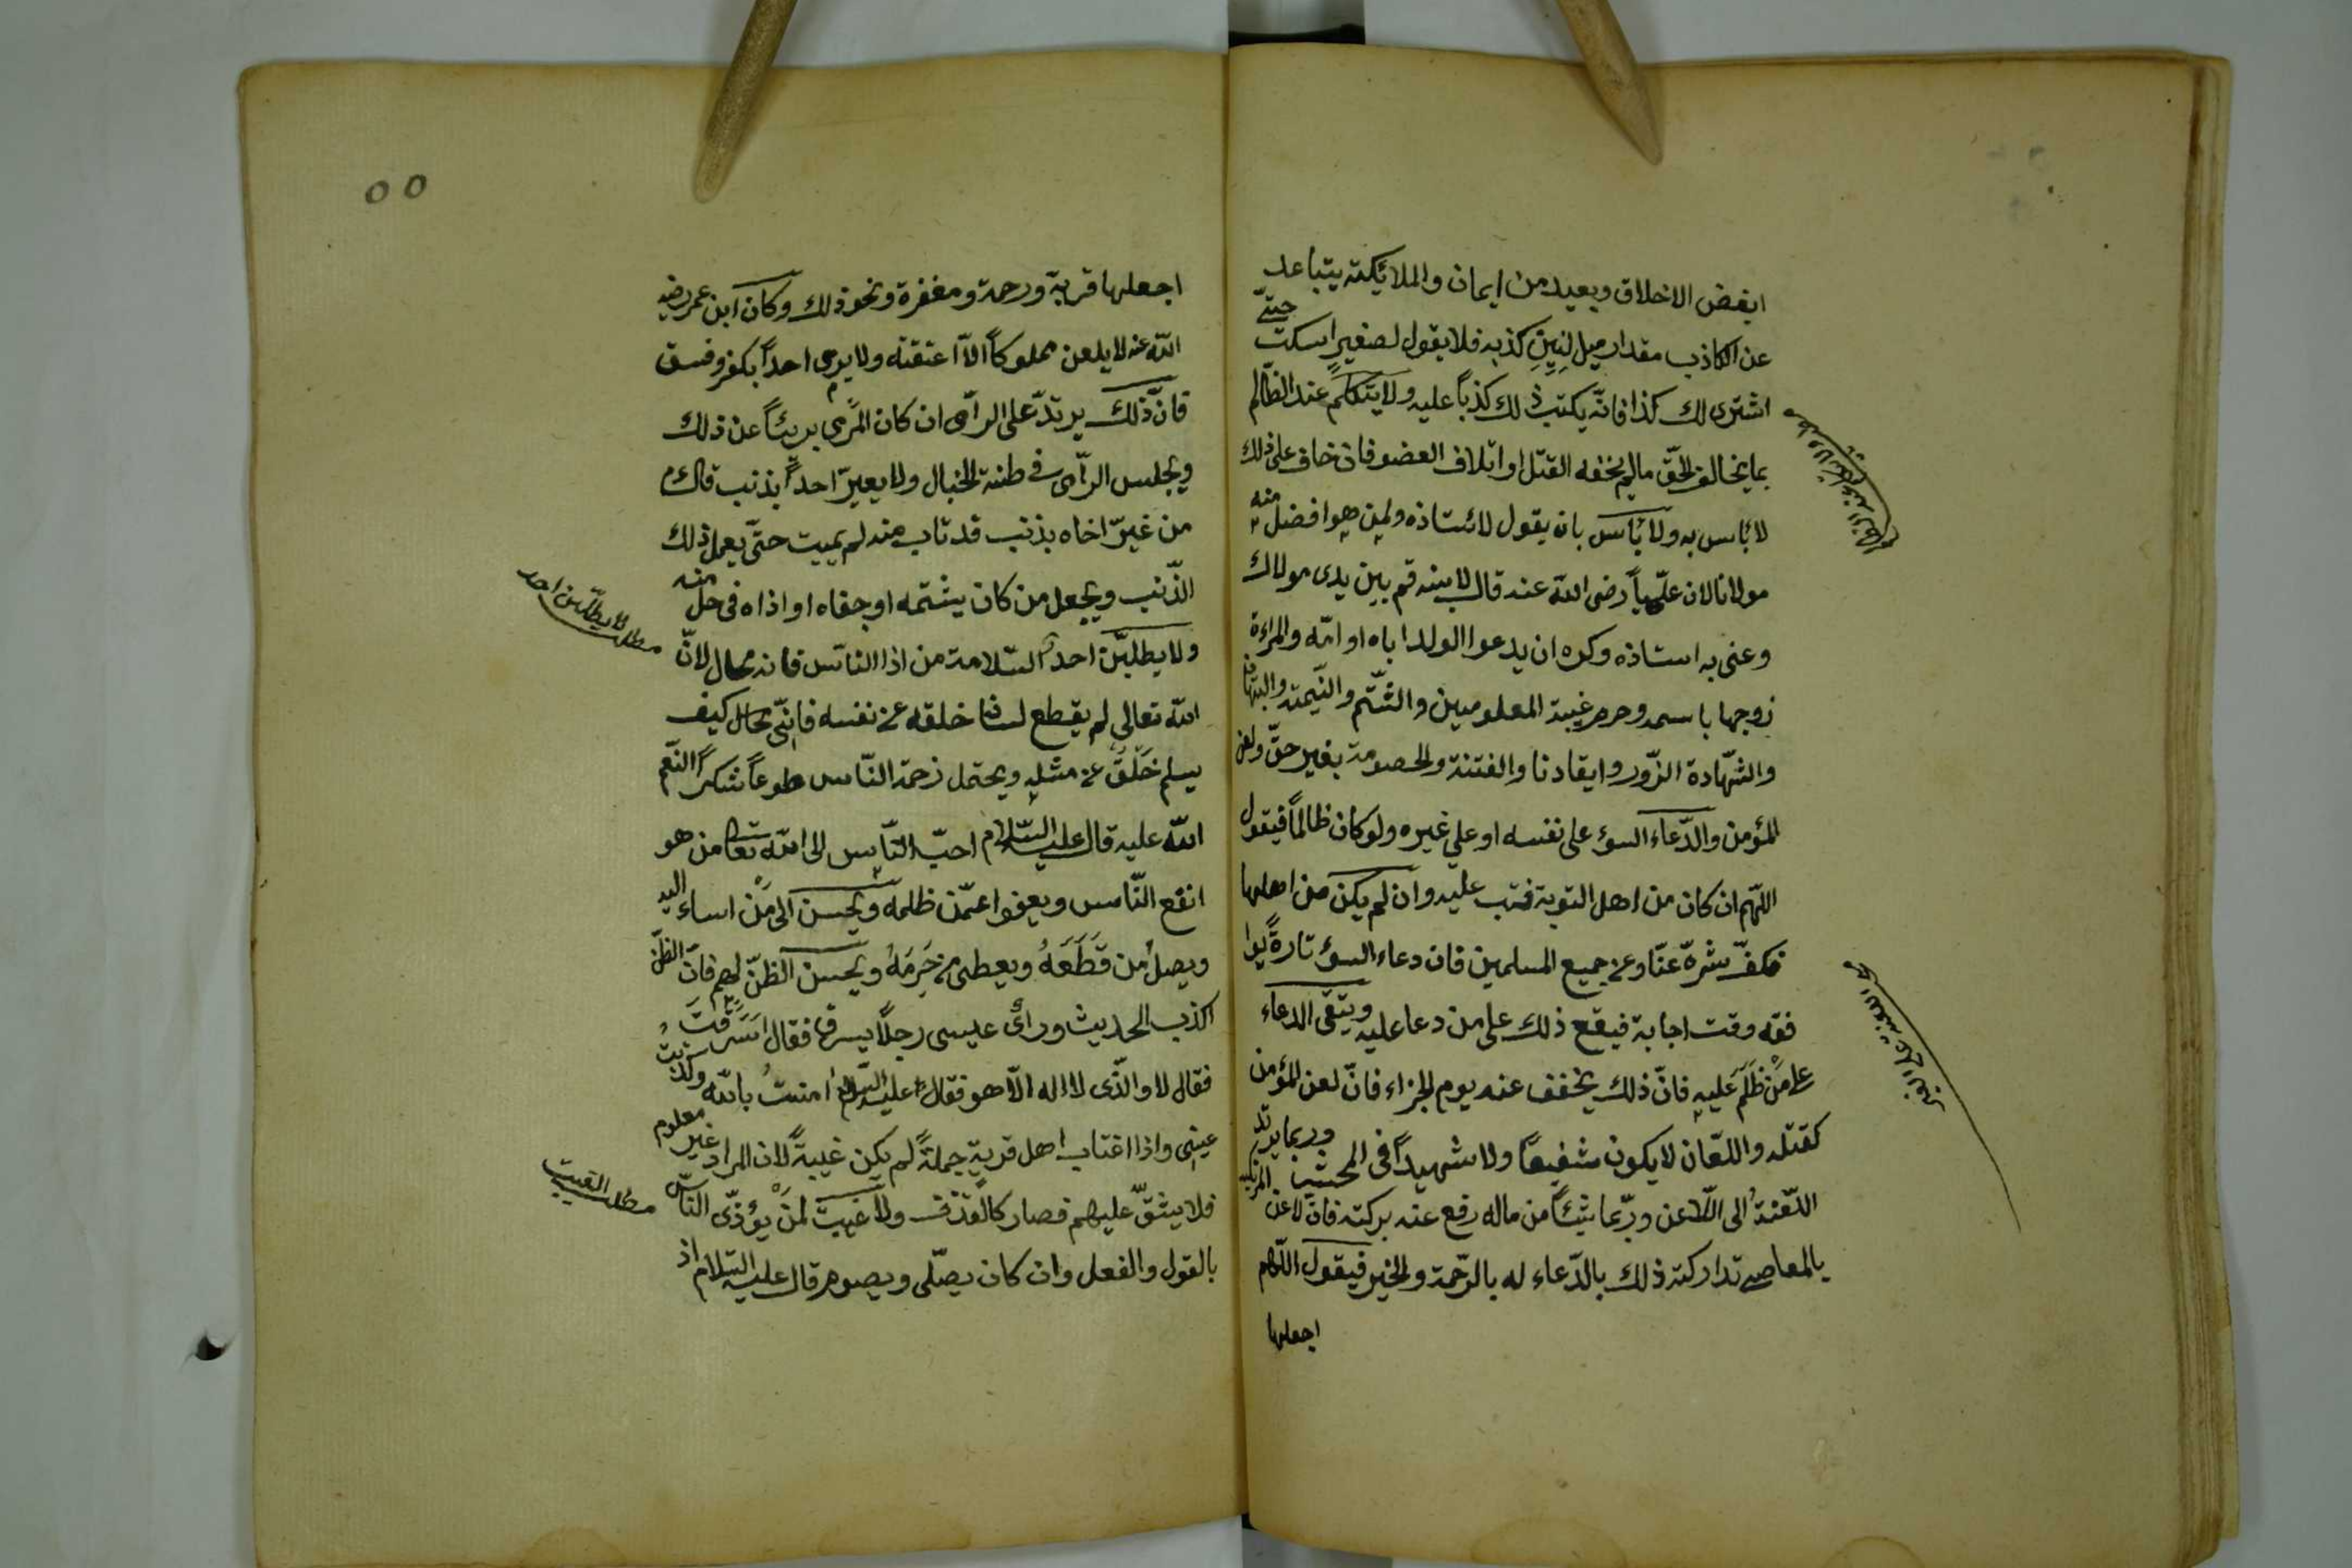 ابغض الاخلاق وبعيد من ايمان والملائيكته يتباعد
عن الكاذب مقدار ميل لنتن كذبه فلا يقول لصغير اسكت حتّى
اشترى لك كذا فانّه يكتب ذلك كذباً عليه ولا يتكلّم عند الظّالم
بما يخالف الحقّ ما لم يخفه القتل او اتلاف العضو فان خاف على ذلك
لا بأس به ولا بأس بان يقول لاستاذه ولمن هو افضل منه
مولانا لان عليّاً رضى الله عنه قال لابنه قم بين يدى مولاك
وعنى به استاذه وكره ان يدعوا الولد اباه او امّه والمراءة
زوجها باسمه وحرم غيبة المعلومين والشّتم والنّميمة والبهتان
والشّهادة الزّور وايقادنا والفتنة والخصومة بغير حقّ ولعن
المؤمن والدّعاء السوء على نفسه او على غيره ولو كان ظالماً فيقول
اللّهم ان كان من اهل التوبة فتب عليه وان لم يكن من اهلها
فكفّ شرّه عنّا وعن جميع المسلمين فان دعاء السوء تارةً يوا
فقه وقت اجابة فيقع ذلك على من دعا عليه ويتّقى الدعاء
على من ظلم عليه فانّ ذلك يخفف عنه يوم الجزاء فانّ لعن المؤمن
كقتله واللّعّان لا يكون شفيعاً ولا شهيداً فى المحشر وربما يرتد
اللّعنة الى اللّاعن وربّما شيئاً من ماله رفع عنه بركته فان لاعن المرتكب
بالمعاصى تداركته ذلك بالدّعاء له بالرّحمة والخير فيقول اللّهم
اجعلها
٥٥
اجعلها قربة ورحمة ومغفرة ونحو ذلك وكان ابن عمر رضى
الله عنه لا يلعن مملوكاً الاّ اعتقته ولا يرمى احداً بكفر وفسق
فانّ ذلك يرتدّ على الرّامى ان كان المرمى بريئاً عن ذلك
ويجلس الرّامى فى طنة الخبال ولا يعيّر احداً بذنب قال م
من غيّر اخاه بذنب قد تاب منه لم يميت حتّى يعمل ذلك
الذّنب ويجعل من كان يشتمه او جفاه او اذاه فى حل منه
ولا يطلبّن احد السّلامة من اذا النّاس فانه محال لانّ
مطلب لا يطلبّن احد
الله تعالى لم يقطع لسانا خلقه عن نفسه فانّى بحال كيف
يسلم خلق عن مثله ويحتمل زحمة النّاس طوعاً شكراً النّعم
الله عليه قال عليه السّلام احبّ النّاس الى الله تعا من هو
انفع النّاس ويعفوا عمّن ظلمه ويحسن الى من اساء اليه
ويصل من قطعه ويعطى من حرمه ويحسن الظنّ لهم فانّ الظنّ
اكذب الحديث ورأى عيسى رجلاً يسرق فقال اسرقت
فقال لا والذّى لا اله الّا هو فقال عليه السّلام امنت بالله وكذبت
عينى واذا اغتاب اهل قرية جملةً لم يكن غيبةً لان المراد غير معلوم
فلا يشقّ عليهم فصار كالقذف ولا غيبة لمن يؤذّى النّاس
مطلب الغيبت
بالقول والفعل وان كان يصلّى ويصوم قال عليه السّلام اذ